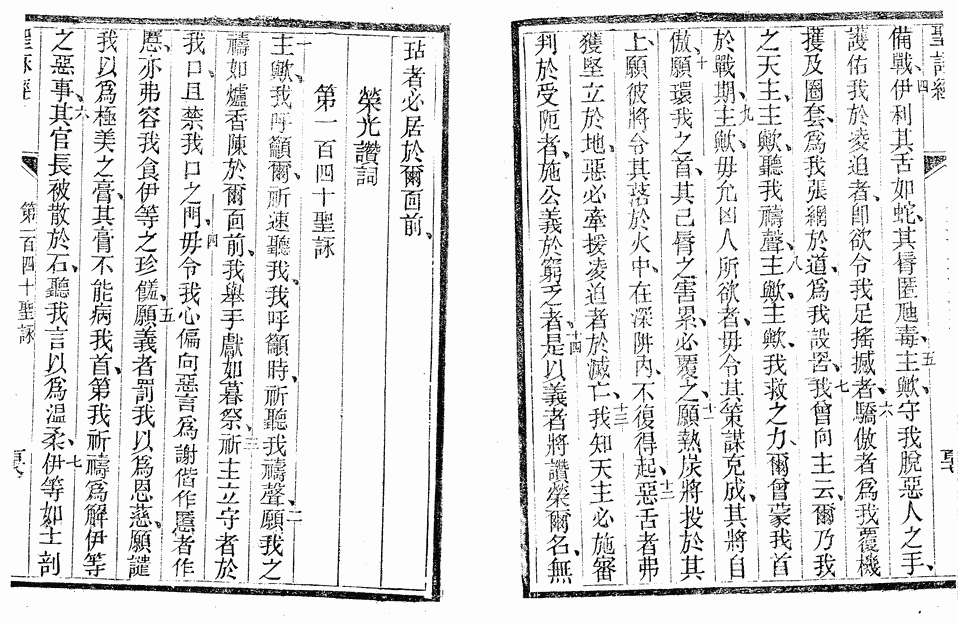 聖詠經
備戰、四伊利其舌如蛇、其脣匿虺毒、五主歟、守我脫惡人之手、
護佑我於凌迫者、卽欲令我足搖撼者、六驕傲者爲我覆機
擭及圈套、爲我張網於道、爲我設罟、七我曾向主云、爾乃我
之天主、主歟、聽我禱聲、八主歟、主歟、我救之力、爾曾蒙我首
於戰期、九主歟、毋允凶人所欲者、毋令其策謀克成、其將自
傲、十願環我之首、其己脣之害累、必覆之、十一願熱炭將投於其
上、願彼將令其落於火中、在深阱內、不復得起、十二惡舌者弗
獲堅立於地、惡必牽援凌迫者於滅亡、十三我知天主必施審
判於受阨者、施公義於窮乏者、十四是以義者將讚榮爾名、無
玷者必居於爾面前、
榮光讚詞
第一百四十聖詠
一主歟、我呼籲爾、祈速聽我、我呼籲時、祈聽我禱聲、二願我之
禱如爐香陳於爾面前、我舉手獻如暮祭、三祈主立守者於
我口、且禁我口之門、四毋令我心偏向惡言、爲謝偕作慝者作
慝、亦弗容我食伊等之珍饈、五願義者罰我以爲恩慈、願譴
我以爲極美之膏、其膏不能病我首、第我祈禱爲解伊等
之惡事、六其官長被散於石、聽我言以爲溫柔、七伊等如土剖
聖詠經
第一百四十聖詠